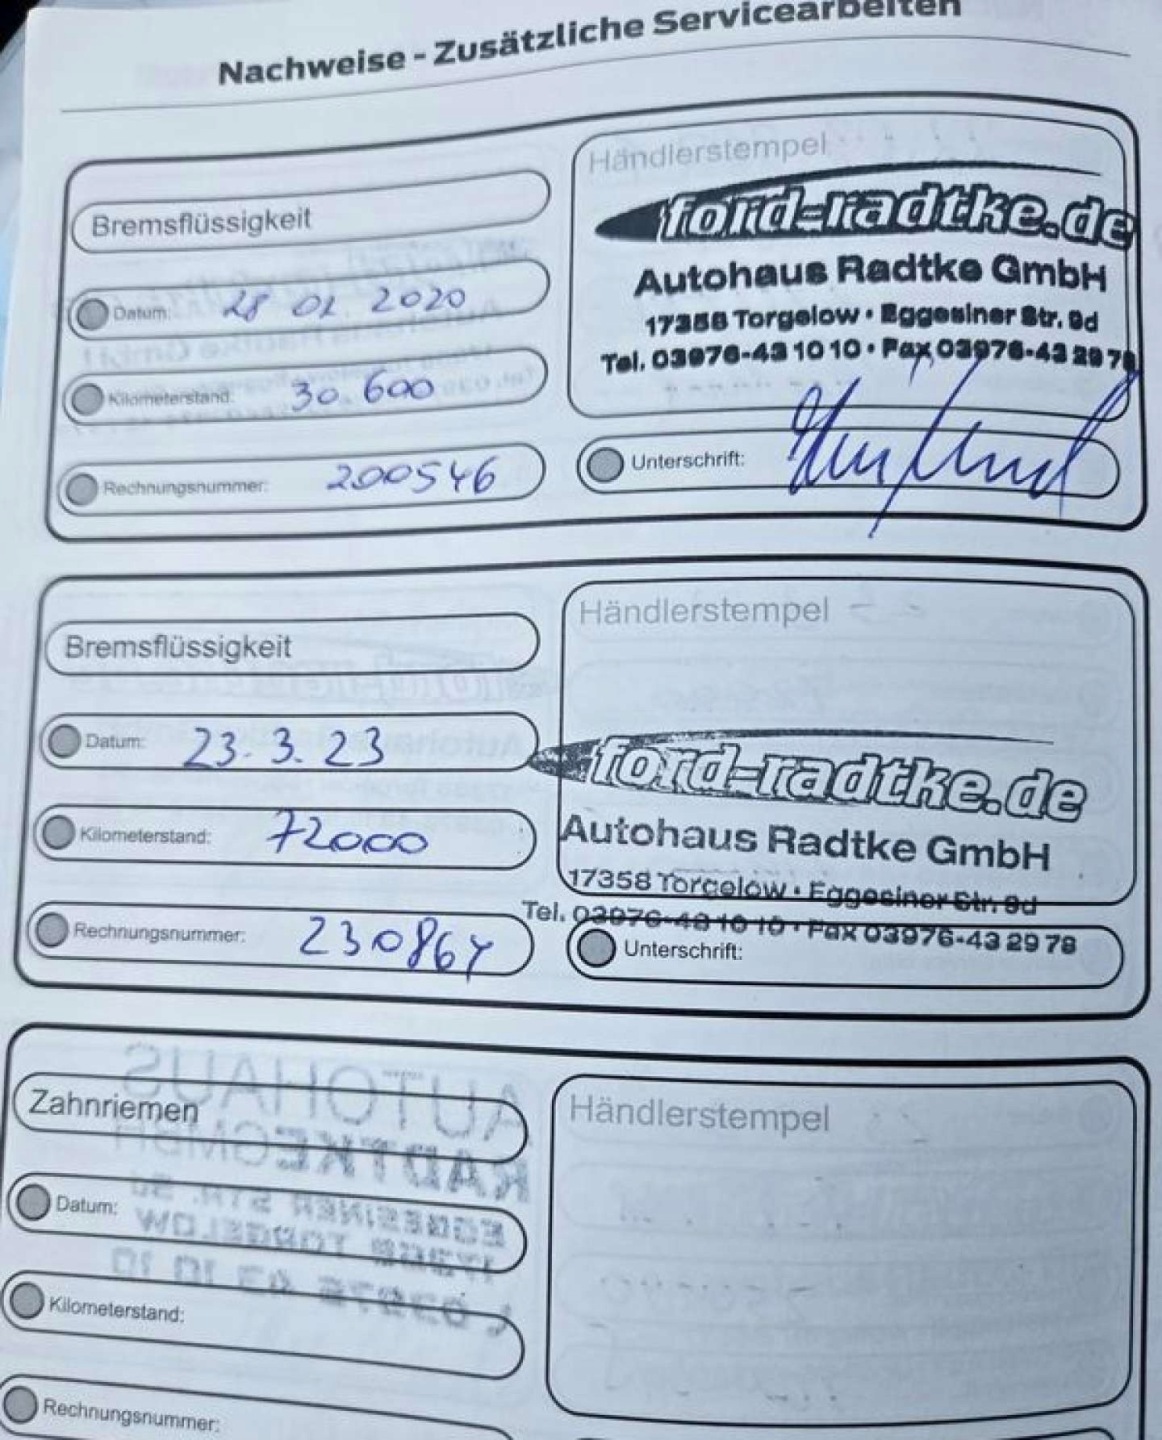 Nachweise - Zusätzliche Servicearbeiten
Bremsflüssigkeit
Datum: 28 01 2020
Kilometerstand: 30.600
Rechnungsnummer: 200546
Händlerstempel
ford-radtke.de
Autohaus Radtke GmbH
17358 Torgelow • Eggesiner Str. 9d
Tel. 03976-43 10 10 • Fax 03976-43 29 78
Unterschrift:
Bremsflüssigkeit
Datum: 23.3.23
Kilometerstand: 72000
Rechnungsnummer: 230867
Händlerstempel
ford-radtke.de
Autohaus Radtke GmbH
17358 Torgelow • Eggesiner Str. 9d
Tel. 03976-43 10 10 • Fax 03976-43 29 78
Unterschrift:
Zahnriemen
Datum:
Kilometerstand:
Rechnungsnummer:
Händlerstempel